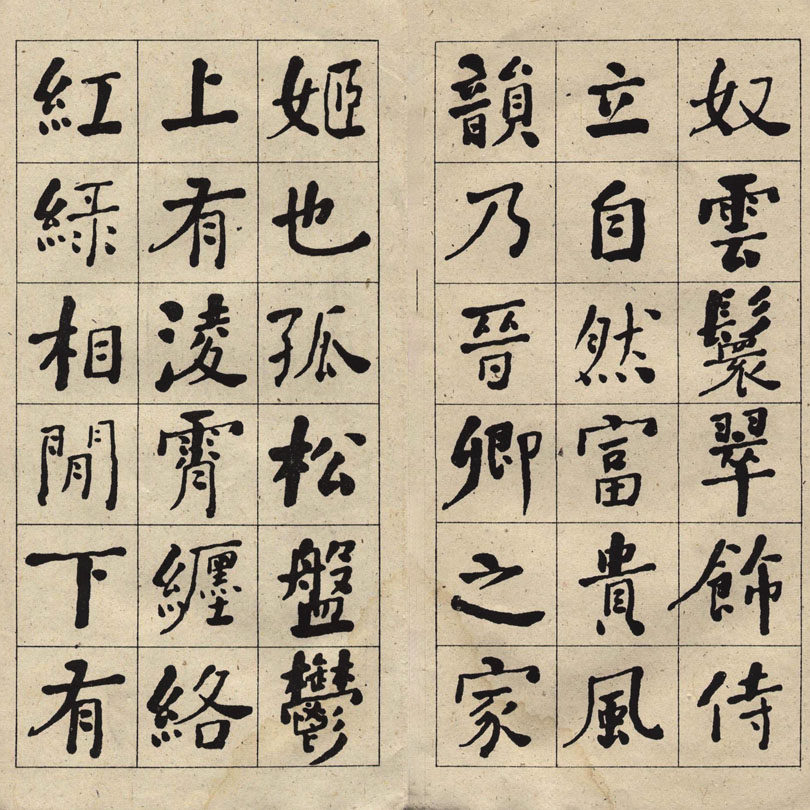 奴雲鬟翠飾侍
立自然富貴風
韻乃晉卿之家
姬也孤松盤鬱
上有淩霄纏絡
紅綠相間下有